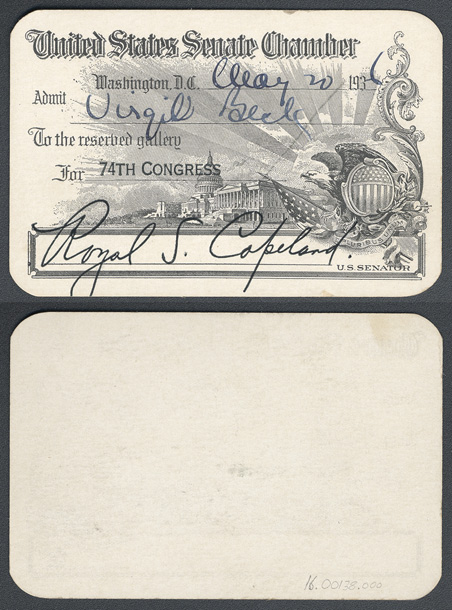 United States Senate Chamber
Washington, D.C. May 20 1936
Admit Virgil Beck
To the reserved gallery
For 74TH CONGRESS
Royal S. Copeland.
U.S. SENATOR
16.00138.000